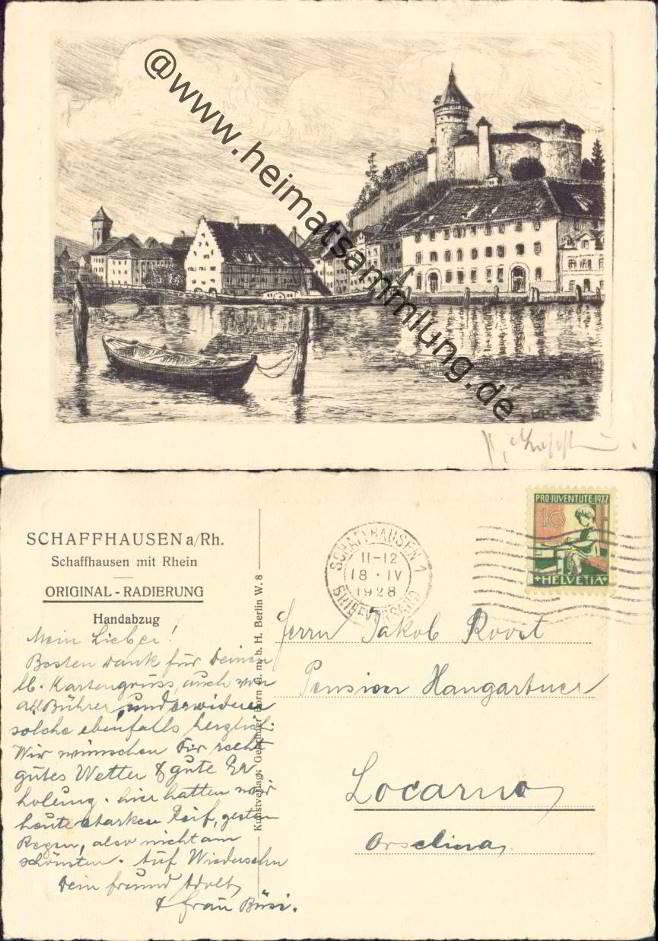 @www.heimatsammlung.de
SCHAFFHAUSEN a/Rh.
Schaffhausen mit Rhein
ORIGINAL - RADIERUNG
Handabzug
Kunstverlag: Gebrüder Dorn G. m. b. H. Berlin W. 8
SCHAFFHAUSEN 1
11-12
18 · IV
1928
PRO JUVENTUTE 1927
HELVETIA
Mein Lieber!
Besten Dank für Deinen
lb. Kartengruss, auch von
Bührer, und erwidere
solche ebenfalls herzlich.
Wir wünschen Dir recht
gutes Wetter & gute Er
holung. hier hatten wir
heute starken Reif, gestern
Regen, also nicht am
schönsten. Auf Wiedersehn
Dein freund Adolf
& frau Büsi.
Herrn Jakob Roost
Pension Hangartner
Locarno
Orselina